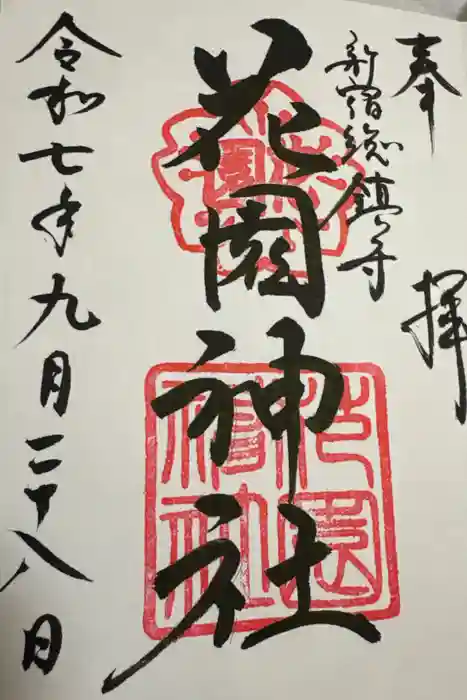 奉拝
新宿総鎮守
花園神社
令和七年九月二十八日
花園
花園神社